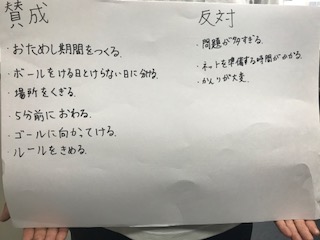 賛成
・おためし期間をつくる。
・ボールをける日とけらない日に分ける。
・場所をくぎる。
・5分前におわる。
・ゴールに向かってける。
・ルールをきめる。
反対
・問題が多すぎる。
・ネットを準備する時間がかかる。
・かんりが大変。